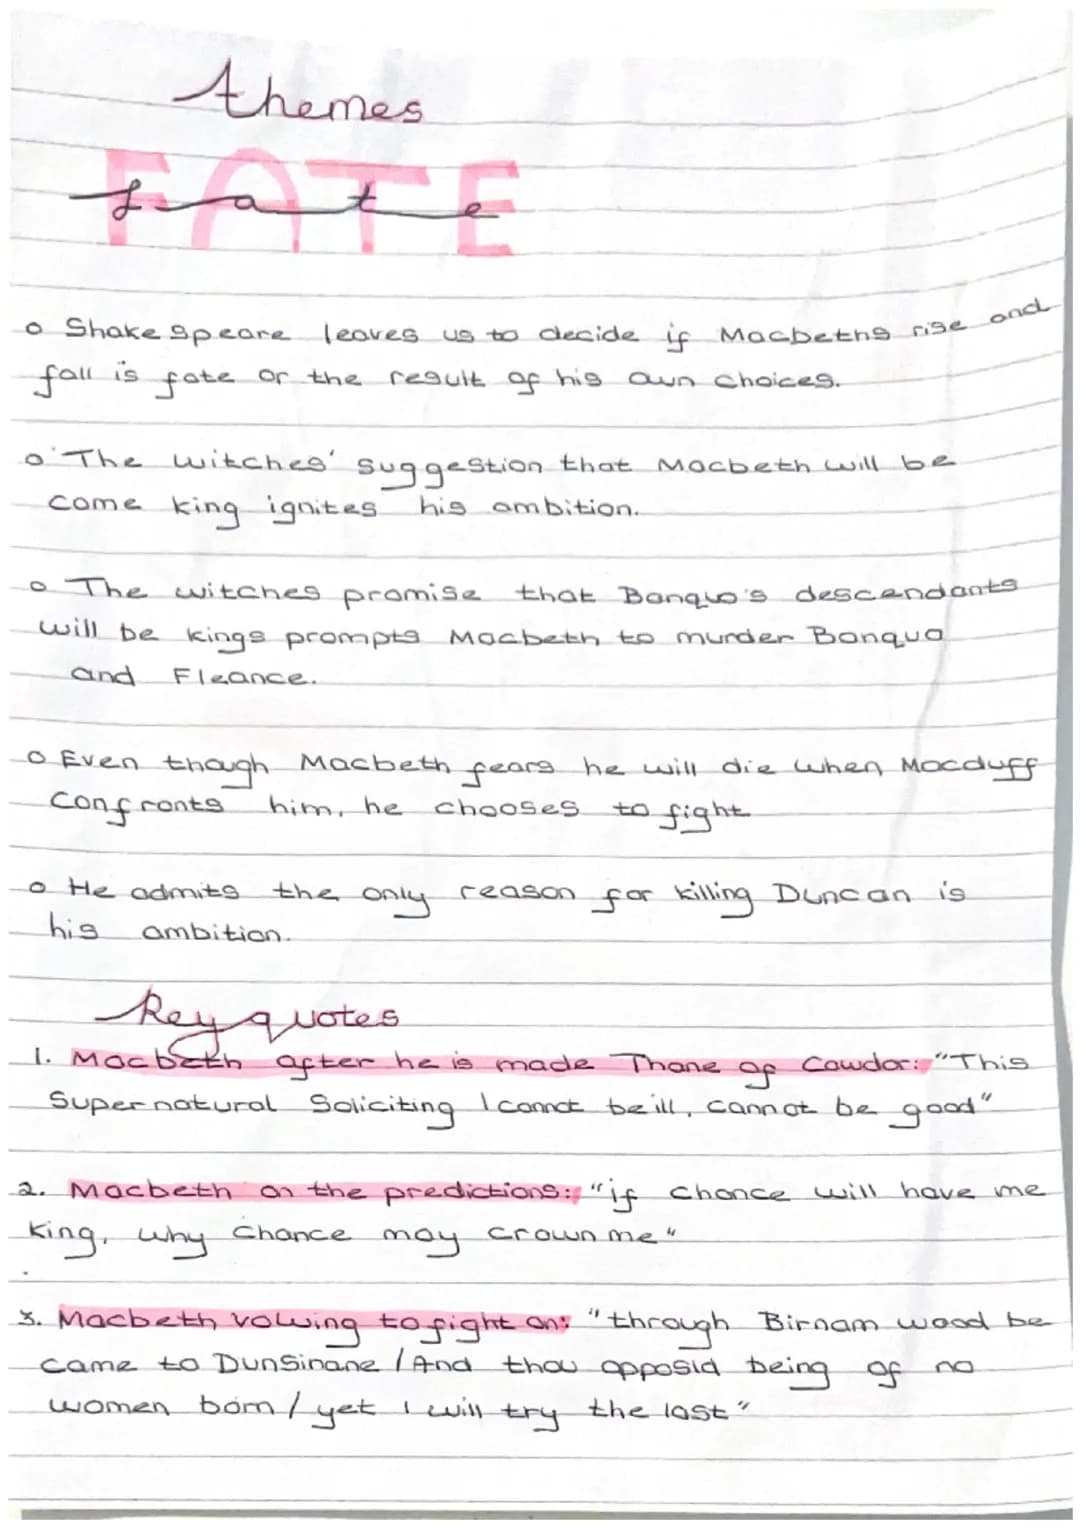 themes
FATE
fate
o Shakespeare leaves us to decide if Macbeths rise and
fall is fate or the result of his own choices.
o The witches' suggestion that Macbeth will be
come king ignites his ambition.
o The witches promise that Banquo's descendants
will be kings prompts Macbeth to murder Banquo
and Fleance.
o Even though Macbeth fears he will die when Macduff
confronts him, he chooses to fight
o He admits the only reason for killing Duncan is
his ambition.
Key quotes
1. Macbeth after he is made Thane of Cawdor: "This
Supernatural Soliciting / cannot be ill, cannot be good"
2. Macbeth on the predictions: "if chance will have me
King, why chance may crown me"
3. Macbeth vowing to fight on: "through Birnam wood be
came to Dunsinane / And thou opposid being of no
women born / yet I will try the last"